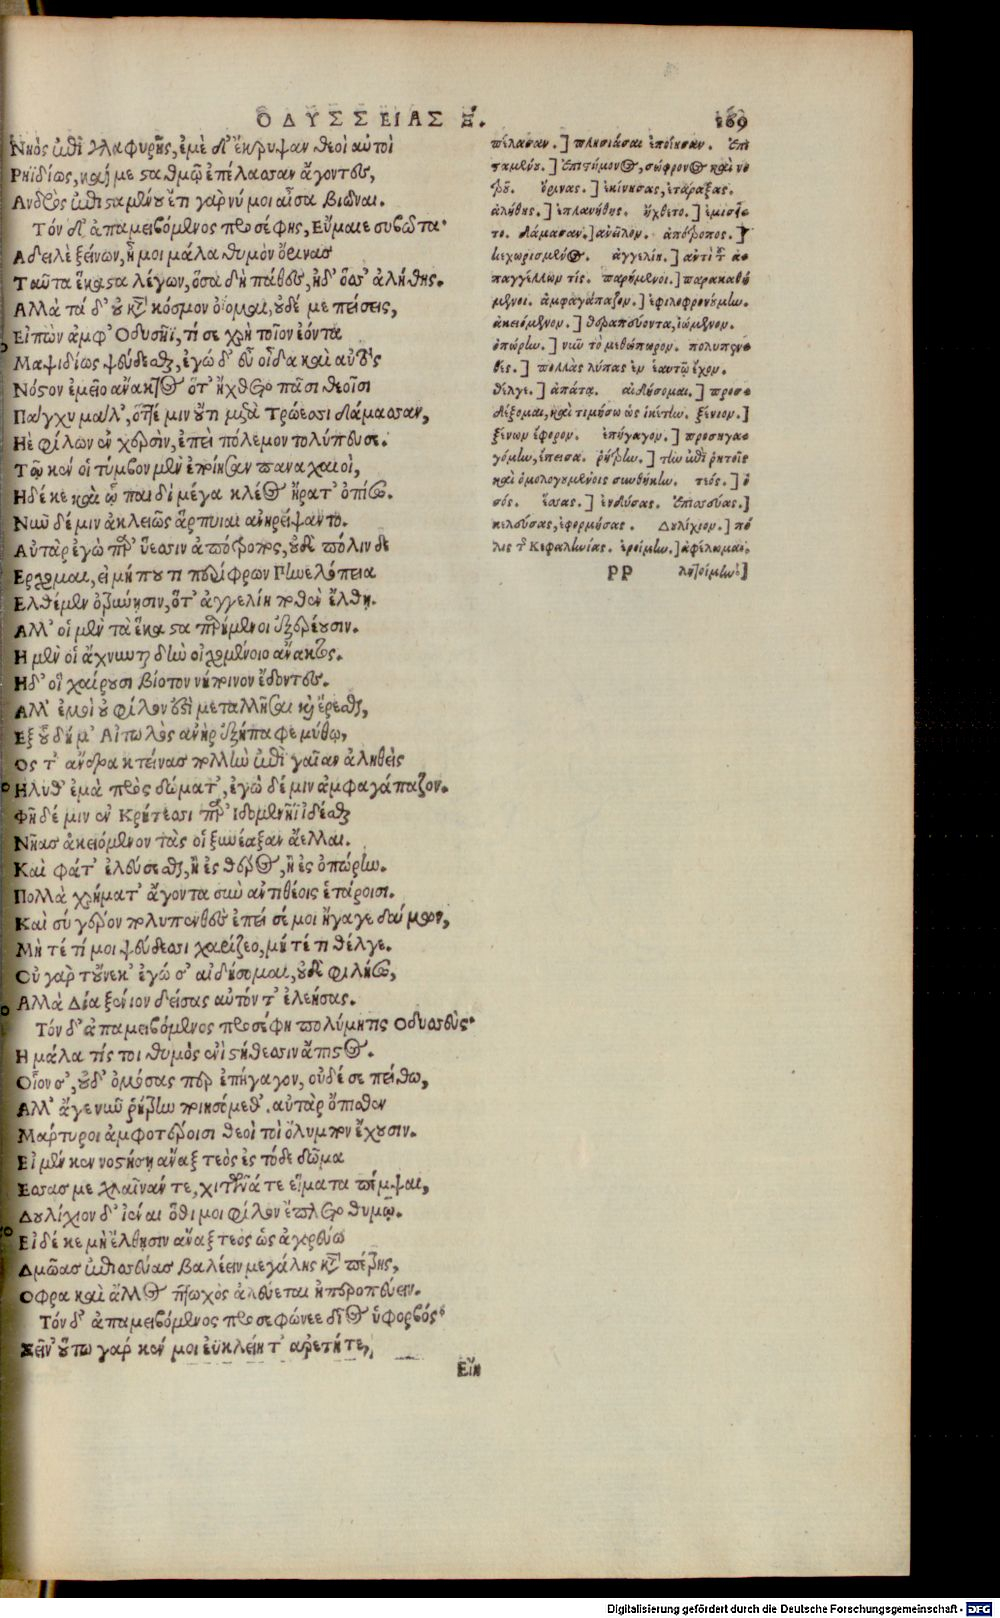 ΟΔΥΣΣΕΙΑΣ Ξ.
169
Νηὸς ἐπὶ γλαφυρῆς, ἐμὲ δ' ἔκρυψαν θεοὶ αὐτοὶ
Ρηϊδίως, καί με σταθμῷ ἐπέλασσαν ἄγοντες,
Ανδρὸς ἐπισταμένου ἔτι γάρ νύ μοι αἶσα βιῶναι.
Τόν δ' ἀπαμειβόμενος προσέφης, Εὔμαιε συβῶτα·
Α δειλὲ ξείνων, ἦ μοι μάλα θυμὸν ὄρινας
Ταῦτα ἕκαστα λέγων, ὅσα δὴ πάθες, ἠδ' ὅσσ' ἀλήθης.
Αλλὰ τά δ' οὐ κατὰ κόσμον ὀΐομαι, οὐδέ με πείσεις,
Εἰπὼν ἀμφ' Οδυσῆϊ, τί σε χρὴ τοῖον ἐόντα
Μαψιδίως ψεύδεσθαι, ἐγὼ δ' εὖ οἶδα καὶ αὐτὸς
Νόστον ἐμεῖο ἄνακτος ὅτ' ἤχθετο πᾶσι θεοῖσι
Πάγχυ μάλ', ὅττί μιν οὔτι μετὰ Τρώεσσι δάμασσαν,
Ηὲ φίλων ἐν χερσὶν, ἐπεὶ πόλεμον τολύπευσε.
Τῷ κέν οἱ τύμβον μὲν ἐποίησαν παναχαιοὶ,
Ηδέ κε καὶ ᾧ παιδὶ μέγα κλέος ἤρατ' ὀπίσσω.
Νῦν δέ μιν ἀκλειῶς ἅρπυιαι ἀνηρείψαντο.
Αὐτὰρ ἐγὼ παρ' ὕεσσιν ἀπότροπος, οὐδὲ πόλιν δε
Ερχομαι, εἰ μή πού τι περίφρων Πηνελόπεια
Ελθέμεν ὀτρύνησιν, ὅτ' ἀγγελίη ποθὲν ἔλθῃ.
Αλλ' οἱ μὲν τὰ ἕκαστα παρήμενοι ἐξερέουσιν.
Η μὲν οἳ ἄχνυνται δὴν οἰχομένοιο ἄνακτος.
Ηδ' οἳ χαίρουσι βίοτον νήποινον ἔδοντες.
Αλλ' ἐμοὶ οὐ φίλον ἐστὶ μεταλλῆσαι καὶ ἔρεσθαι,
Εξ οὗ δή μ' Αἰτωλὸς ἀνὴρ ἐξήπαφε μύθῳ,
Ος τ' ἄνδρα κτείνας πολλὴν ἐπὶ γαῖαν ἀληθεὶς
Ηλυθ' ἐμὰ πρὸς δώματ', ἐγὼ δέ μιν ἀμφαγάπαζον.
Φῆ δέ μιν ἐν Κρήτεσσι παρ' Ιδομενῆϊ ἰδέσθαι
Νῆας ἀκειόμενον τὰς οἱ ξυνέαξαν ἄελλαι.
Καὶ φάτ' ἐλεύσεσθαι, ἢ ἐς θέρος, ἢ ἐς ὀπώρην.
Πολλὰ χρήματ' ἄγοντα σὺν ἀντιθέοις ἑτάροισι.
Καὶ σύ γέρον πολυπενθὲς ἐπεί σέ μοι ἤγαγε δαίμων,
Μή τέ τί μοι ψεύδεσσι χαρίζεο, μή τέ τι θέλγε.
Οὐ γὰρ τοὔνεκ' ἐγώ σ' αἰδήσομαι, οὐδὲ φιλήσω,
Αλλὰ Δία ξένιον δείσας αὐτόν τ' ἐλεήσας.
Τόν δ' ἀπαμειβόμενος προσέφη πολύμητις Οδυσσεύς·
Η μάλα τίς τοι θυμὸς ἐνὶ στήθεσσιν ἄπιστος.
Οἷον σ', οὐδ' ὀμόσας περ ἐπήγαγον, οὐδέ σε πείθω,
Αλλ' ἄγε νῦν ῥήτρην ποιησόμεθ'. αὐτὰρ ὄπισθεν
Μάρτυροι ἀμφοτέροισι θεοὶ τοὶ ὄλυμπον ἔχουσιν.
Εἰ μέν κεν νοστήσῃ ἄναξ τεὸς ἐς τόδε δῶμα
Εσσας με χλαῖνάν τε, χιτῶνά τε εἵματα πέμψαι,
Δουλίχιον δ' ἰέναι ὅθι μοι φίλον ἔπλετο θυμῷ.
Εἰ δέ κε μὴ ἔλθησιν ἄναξ τεὸς ὡς ἀγορεύω
Δμῶας ἐπισσεύας βαλέειν μεγάλης κατὰ πέτρης,
Οφρα καὶ ἄλλος πτωχὸς ἀλεύεται ἠπεροπεύειν.
Τόν δ' ἀπαμειβόμενος προσεφώνεε δῖος ὑφορβός·
Ξεῖν' οὕτω γάρ κέν μοι ἐϋκλείη τ' ἀρετή τε,
Εἴη
πέλασαν.] πλησιάσαι ἐποίησαν. Ἐπι
ταμένου.] Ἐπιστήμονος, σώφρονος καὶ νο
ροῦ. ὄρινας.] ἐκίνησας, ἐτάραξας.
ἀλήθης.] ἐπλανήθης. ἤχθετο.] ἐμισεῖ
το. δάμασαν.] ἀνεῖλον. ἀπότροπος.]
κεχωρισμένος. ἀγγελίη.] ἀντὶ τοῦ ἀ
παγγέλλων τὶς. παρήμενοι.] παρακαθή
μενοι. ἀμφαγάπαζον.] ἐφιλοφρονούμην.
ἀκειόμενον.] θεραπεύοντα, ἰώμενον.
ὀπώρην.] νῦν τὸ μεθόπωρον. πολυπεν
θές.] πολλὰς λύπας ἐν ἑαυτῷ ἔχων.
θέλγε.] ἀπάτα. αἰδήσομαι.] προσ
δέξομαι, καὶ τιμήσω ὡς ἱκέτην. ξένιον.]
ξένων ἔφορον. ἐπήγαγον.] προσηγα
γόμην, ἔπεισα. ῥήτρην.] τὴν ἐπὶ ῥητοῖς
καὶ ὁμολογουμένοις συνθήκην. τεός.] ὁ
σός. ἕσσας.] ἐνδύσας. Ἐπισσεύας.]
κελεύσας, ἐφορμήσας. Δουλίχιον.] πό
λις τῆς Κεφαληνίας. ἑροίμην.] ἀφέλωμαι.
ρρ
λιτοίμην.]
Digitalisierung gefördert durch die Deutsche Forschungsgemeinschaft - DFG